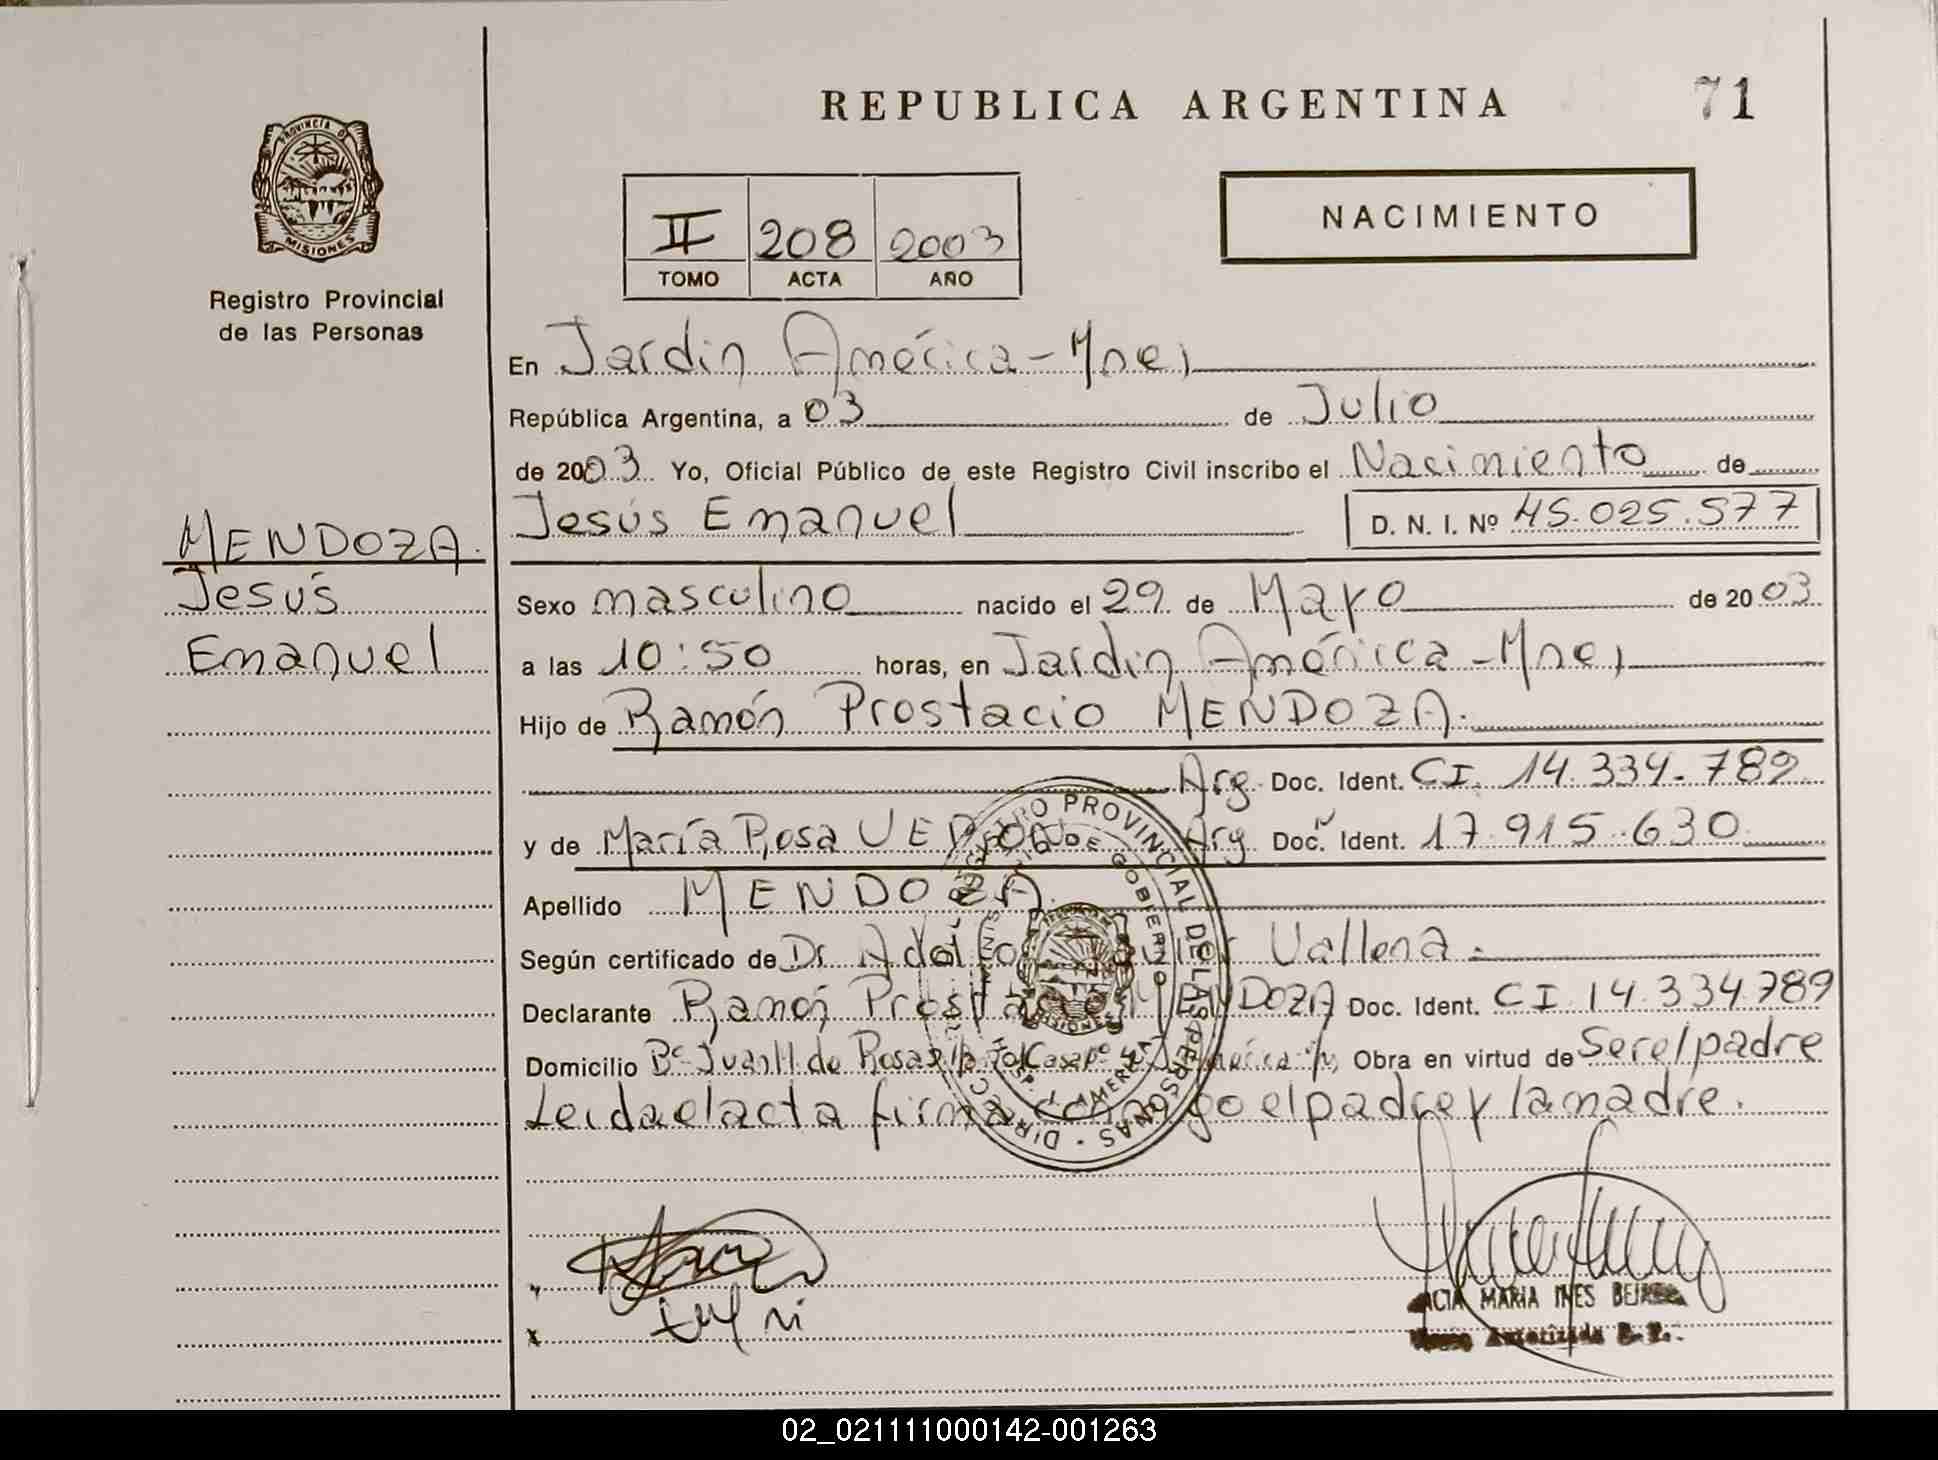 REPUBLICA ARGENTINA
71
PROVINCIA D
MISIONES
Registro Provincial
de las Personas
II 208 2003
TOMO ACTA AÑO
NACIMIENTO
En Jardin América - Mnes,
República Argentina, a 03 de Julio
de 2003 Yo, Oficial Público de este Registro Civil inscribo el Nacimiento de
Jesús Emanuel D. N. I. Nº 45.025.577
MENDOZA.
Jesús
Emanuel
Sexo masculino nacido el 29 de Mayo de 2003
a las 10:50 horas, en Jardin América - Mnes,
Hijo de Ramón Prostacio MENDOZA.
Arg. Doc. Ident. CI. 14.334.789
y de María Rosa Arg Doc. Ident. 17.915.630
Apellido MENDOZA.
Según certificado de Dr. Adolfo Vallena.
Declarante Ramón Prostacio MENDOZA Doc. Ident. CI 14.334.789
Domicilio Bº Juan M. de Rosas América Obra en virtud de Ser el padre
Leida el acta firma conmigo el padre y la madre.
REGISTRO PROVINCIAL DE LAS PERSONAS
DE GOBIERNO
MARIA INES
Autorizada
02_021111000142-001263